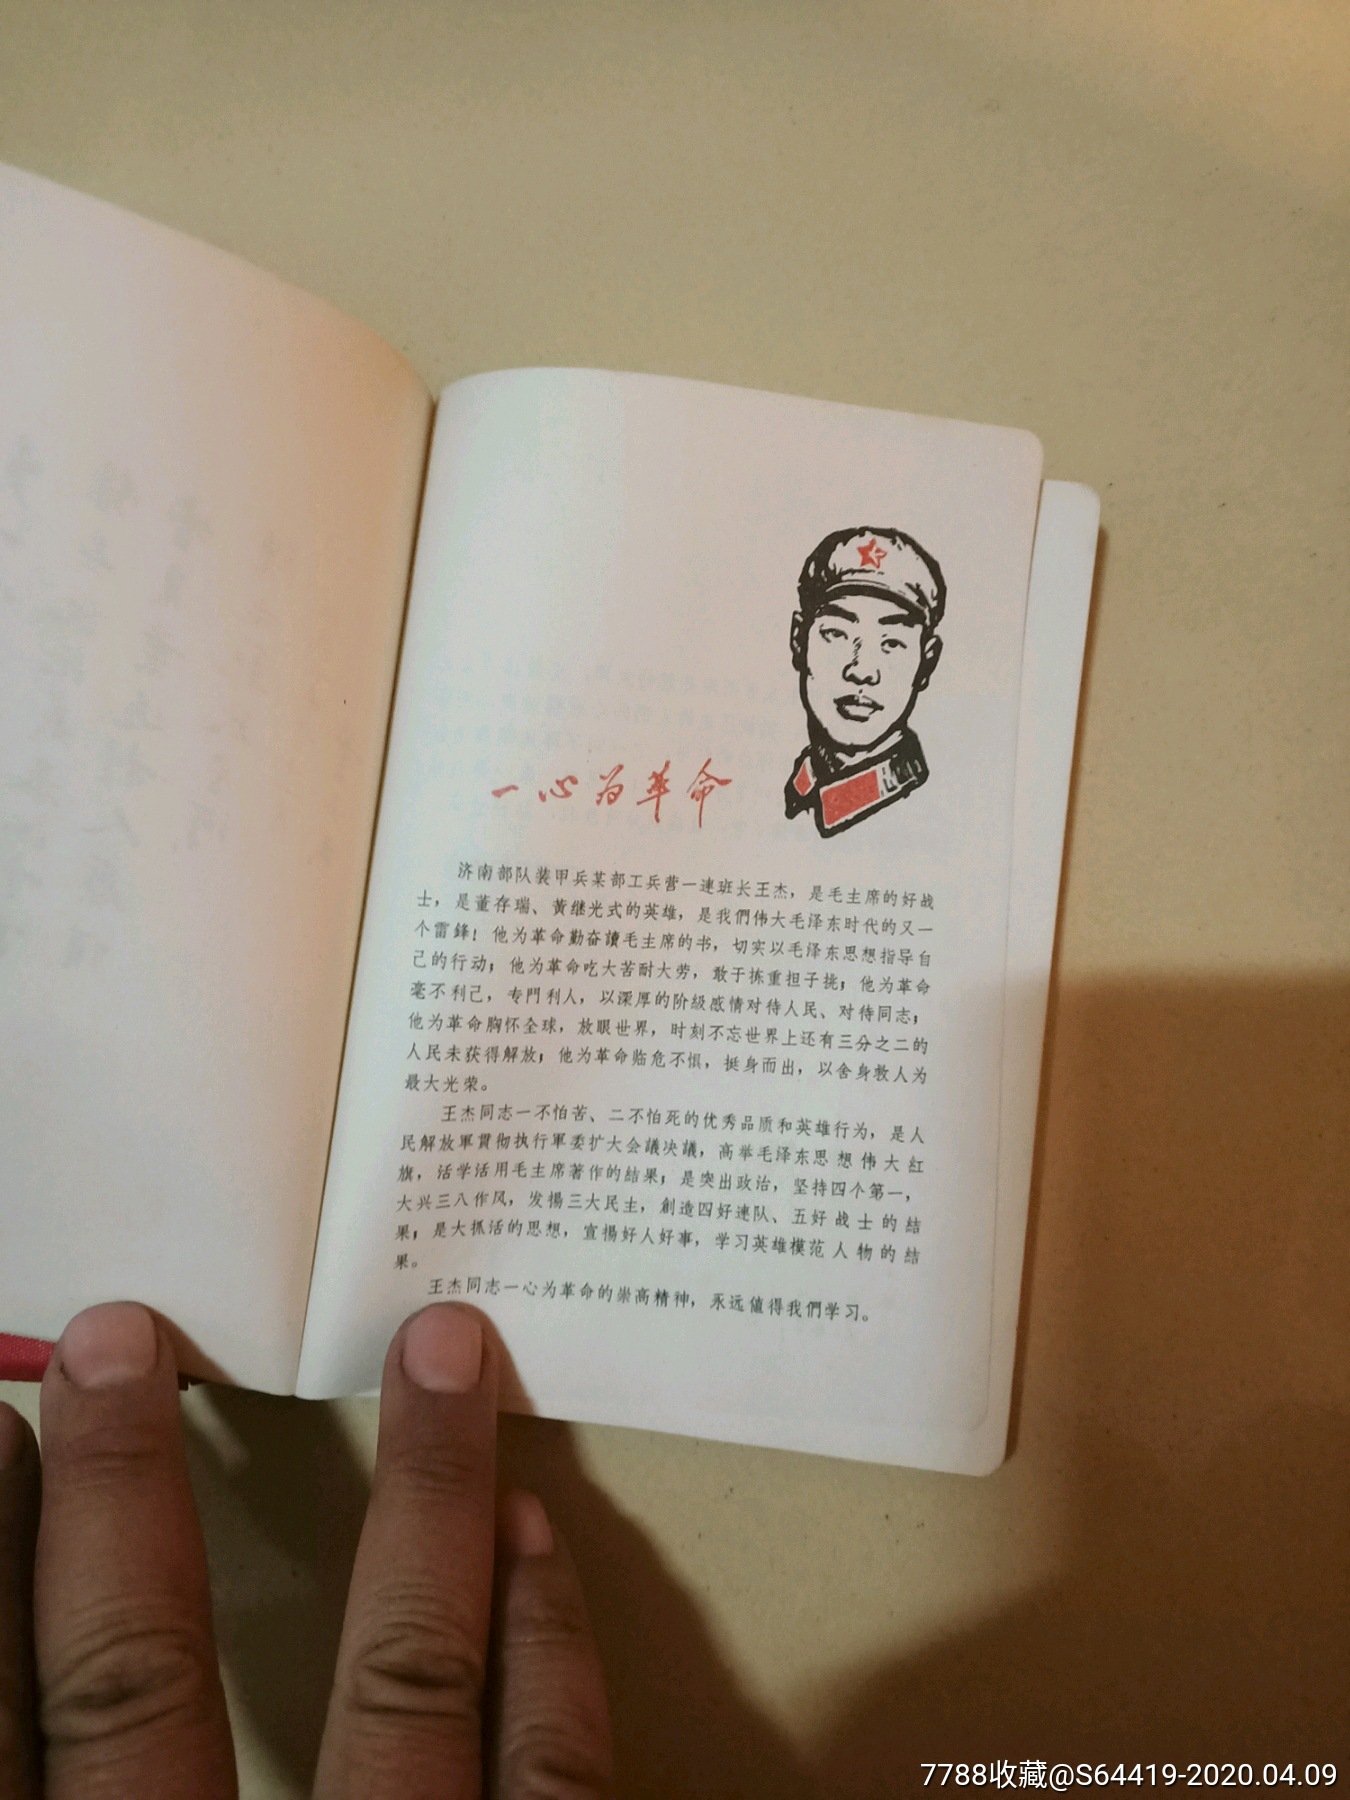 一心为革命
济南部队装甲兵某部工兵营一連班长王杰，是毛主席的好战
士，是董存瑞、黄継光式的英雄，是我們伟大毛泽东时代的又一
个雷鋒！他为革命勤奋讀毛主席的书，切实以毛泽东思想指导自
己的行动；他为革命吃大苦耐大劳，敢于拣重担子挑；他为革命
毫不利己，专門利人，以深厚的阶級感情对待人民、对待同志；
他为革命胸怀全球，放眼世界，时刻不忘世界上还有三分之二的
人民未获得解放；他为革命临危不惧，挺身而出，以舍身救人为
最大光荣。
王杰同志一不怕苦、二不怕死的优秀品质和英雄行为，是人
民解放軍貫彻执行軍委扩大会議决議，高举毛泽东思想伟大紅
旗，活学活用毛主席著作的結果；是突出政治，坚持四个第一，
大兴三八作风，发揚三大民主，創造四好連队、五好战士的結
果；是大抓活的思想，宣揚好人好事，学习英雄模范人物的結
果。
王杰同志一心为革命的崇高精神，永远值得我們学习。
7788收藏@S64419-2020.04.09